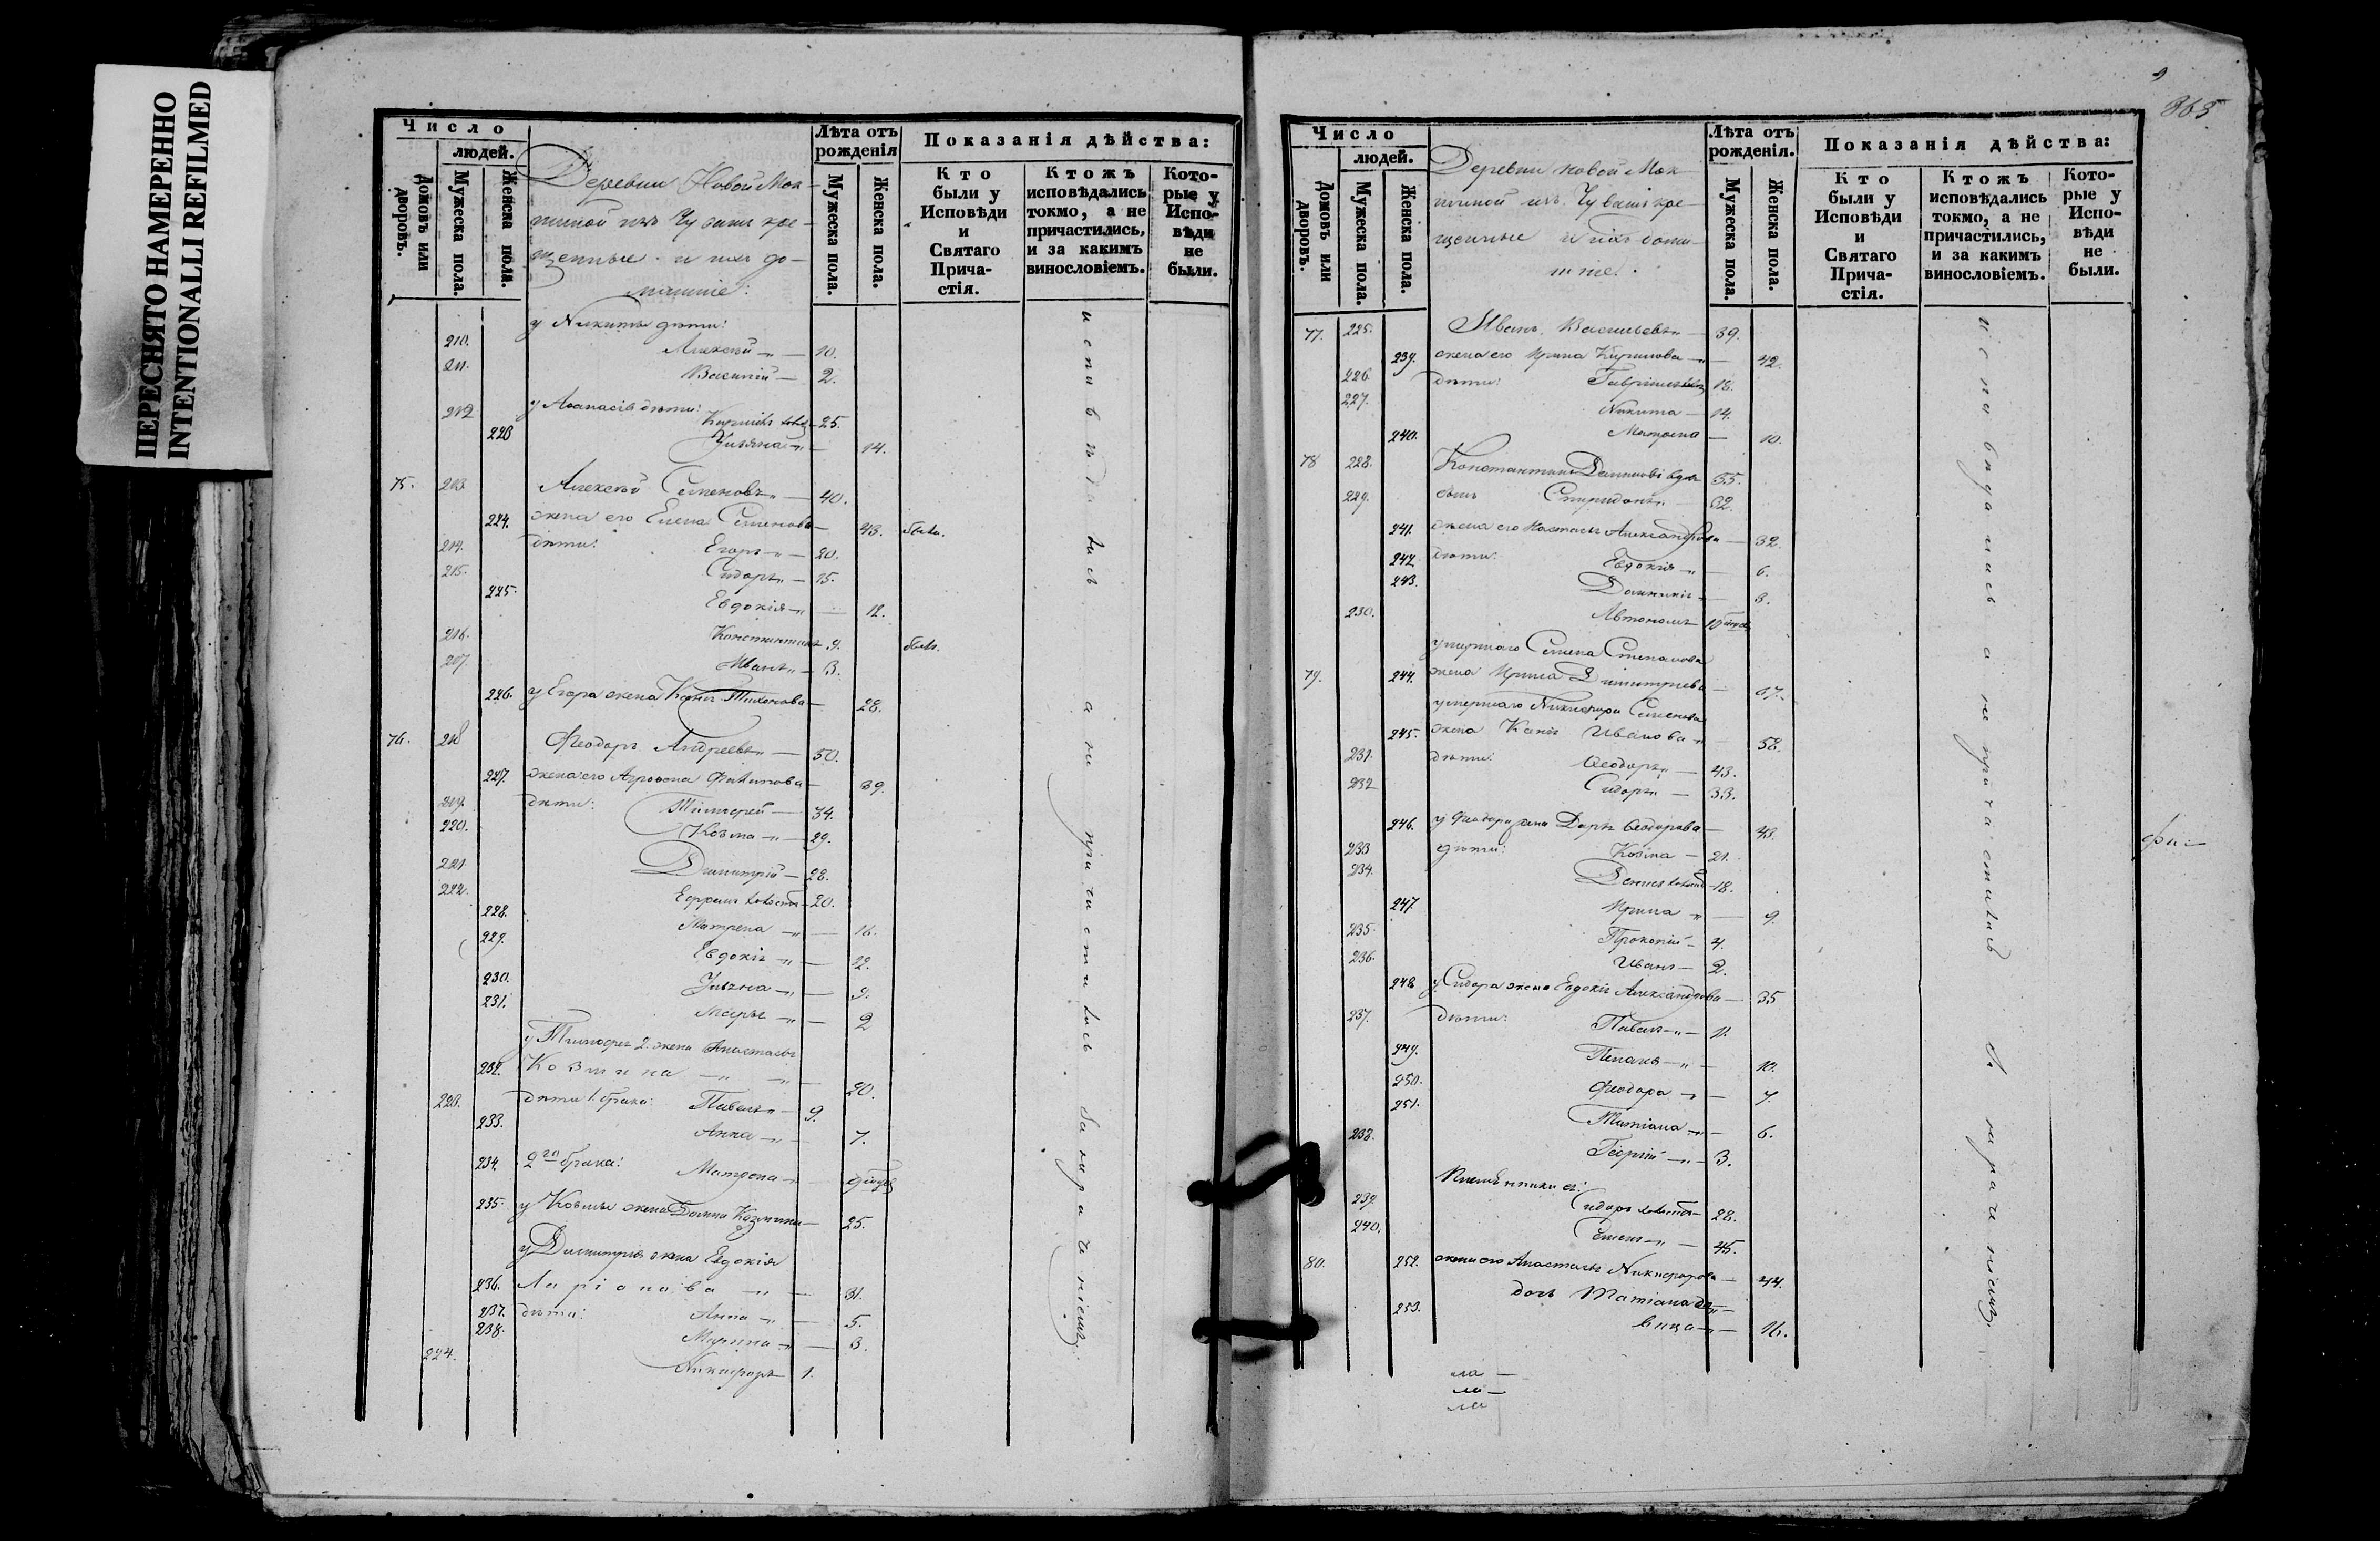 ПЕРЕСНЯТО НАМЕРЕННО
INTENTIONALLI REFILMED
Число
людей.
Домовъ или дворовъ.
Мужеска пола.
Женска пола.
Деревни Новой Мок-
шиной изъ Чувашъ кре-
щенные и ихъ до-
машніе:
Лѣта отъ рожденія
Мужеска пола.
Женска пола.
Показанія дѣйства:
Кто были у Исповѣди и Святаго Прича-стія.
Ктожъ исповѣдались токмо, а не причастились, и за какимъ винословіемъ.
Кото-рые у Испо-вѣди не были.
у Никиты дѣти:
210. Алексѣй 10.
211. Василій 2.
у Аѳанасія дѣти:
212 Корнилъ 25.
223 Ульяна 14.
75. 213 Алексѣй Семеновъ 40.
224. жена его Елена Семенова 43. была.
214. дѣти: Егоръ 20.
215. Сидоръ 15.
225. Евдокія 12.
216. Константинъ 9. былъ.
217 Иванъ 3.
226. у Егора жена Тихонова 28.
76. 218 Феодоръ Андреевъ 50.
227. жена его Филипова 39.
219. дѣти: Тимофей 34.
220. Козма 29.
221 Димитрій 28.
222. 20.
228. Матрена 16.
229. Евдокія 12.
230. Ульяна 9.
231. Марья 2
у Тимофея 2. жена Анастасья
232. Козмина 20.
223. дѣти 1. брака: Павелъ 9.
233. Анна 7.
234. 2го брака: Матрона
235. у Козмы жена Домна Козмина 25.
у Димитрія жена Евдокія
236. Ларіонова 31.
237. дѣти: Анна 5.
238. Марина 3.
224. Никифоръ 1.
исповѣдались а не причастились за нираченіемъ.
365
Число
людей.
Домовъ или дворовъ.
Мужеска пола.
Женска пола.
Деревни новой Мок-
шиной изъ Чувашъ кре-
щенные и ихъ дома-
шніе.
Лѣта отъ рожденія.
Мужеска пола.
Женска пола.
Показанія дѣйства:
Кто были у Исповѣди и Святаго Прича-стія.
Ктожъ исповѣдались токмо, а не причастились, и за какимъ винословіемъ.
Кото-рые у Испо-вѣди не были.
77. 225. Иванъ Васильевъ 39.
239. жена его Ирина Кирилова 42.
226. дѣти: Гавріилъ 18.
227. Никита 14.
240. Матрена 10.
78 228. Константинъ 55.
229. сынъ Спиридонъ 32.
241. жена его Настасья Александрова 32.
242 дѣти: Евдокія 6.
243. 3.
230. Автономъ
умершаго Семена Степанова
79. 244. жена Ирина Димитріева 67.
умершаго Никифора Семенова
245. жена Иванова 58.
231. дѣти: Ѳеодоръ 43.
232 Сидоръ 33.
246. у Феодора жена Дарья Ѳеодорова 43.
233 дѣти: Козма 21.
234. Денисъ 18.
247. Ирина 9.
235. Прокопій 4.
236. Иванъ 2.
248 у Сидора жена Евдокія Александрова 35
237. дѣти: Павелъ 11.
249. Пелагея 10.
250. Феодора 7.
251. Татіана 6.
238. Георгій 3.
Племянники ея:
239. Сидоръ 28.
240. Семенъ 45.
80. 252. жена его Анастасья Никифорова 44.
дочь Татіана дѣ-
253. вица 16.
исповѣдались а не причастились за нираченіемъ.